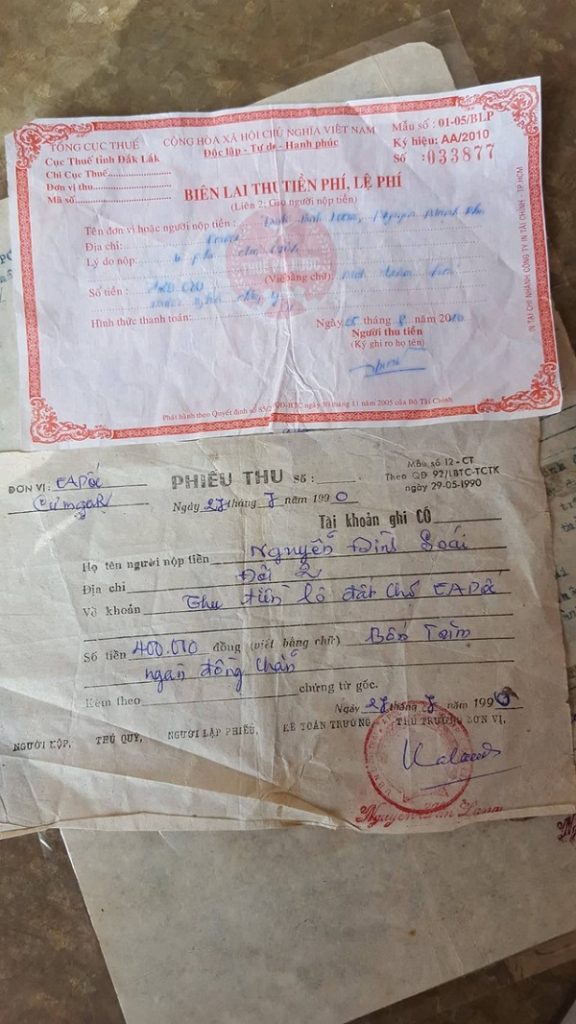 TỔNG CỤC THUẾ
Cục Thuế tỉnh Đắk Lắk
Chi Cục Thuế:
Đơn vị thu
Mã số:
CỘNG HÒA XÃ HỘI CHỦ NGHĨA VIỆT NAM
Độc lập - Tự do - Hạnh phúc
Mẫu số : 01-05/BLP
Ký hiệu: AA/2010
Số : 033877
BIÊN LAI THU TIỀN PHÍ, LỆ PHÍ
(Liên 2: Giao người nộp tiền)
Tên đơn vị hoặc người nộp tiền :
Địa chỉ:
Lý do nộp:
Số tiền : (Viết bằng chữ)
Hình thức thanh toán:
Ngày tháng 8 năm 2010
Người thu tiền
(Ký ghi rõ họ tên)
Phát hành theo Quyết định số 85/2005/QĐ-BTC ngày 30 tháng 11 năm 2005 của Bộ Tài Chính
IN TẠI CHI NHÁNH CÔNG TY IN TÀI CHÍNH - TP.HCM
ĐƠN VỊ: EAPốc
Cưmgar
PHIẾU THU Số :
Ngày 27 tháng 7 năm 1990
Mẫu số 12-CT
Theo QĐ 92/LBTC-TCTK
ngày 29-05-1990
Tài khoản ghi CÓ
Họ tên người nộp tiền Nguyễn Đình Soái
Địa chỉ Đội 2
Về khoản Thu tiền lô đất chợ EAPốc
Số tiền 400.000 đồng (viết bằng chữ) Bốn Trăm
ngàn đồng chẵn
Kèm theo chứng từ gốc.
Ngày 27 tháng 7 năm 1990
NGƯỜI NỘP, THỦ QUỸ, NGƯỜI LẬP PHIẾU, KẾ TOÁN TRƯỞNG, THỦ TRƯỞNG ĐƠN VỊ,
Nguyễn Văn